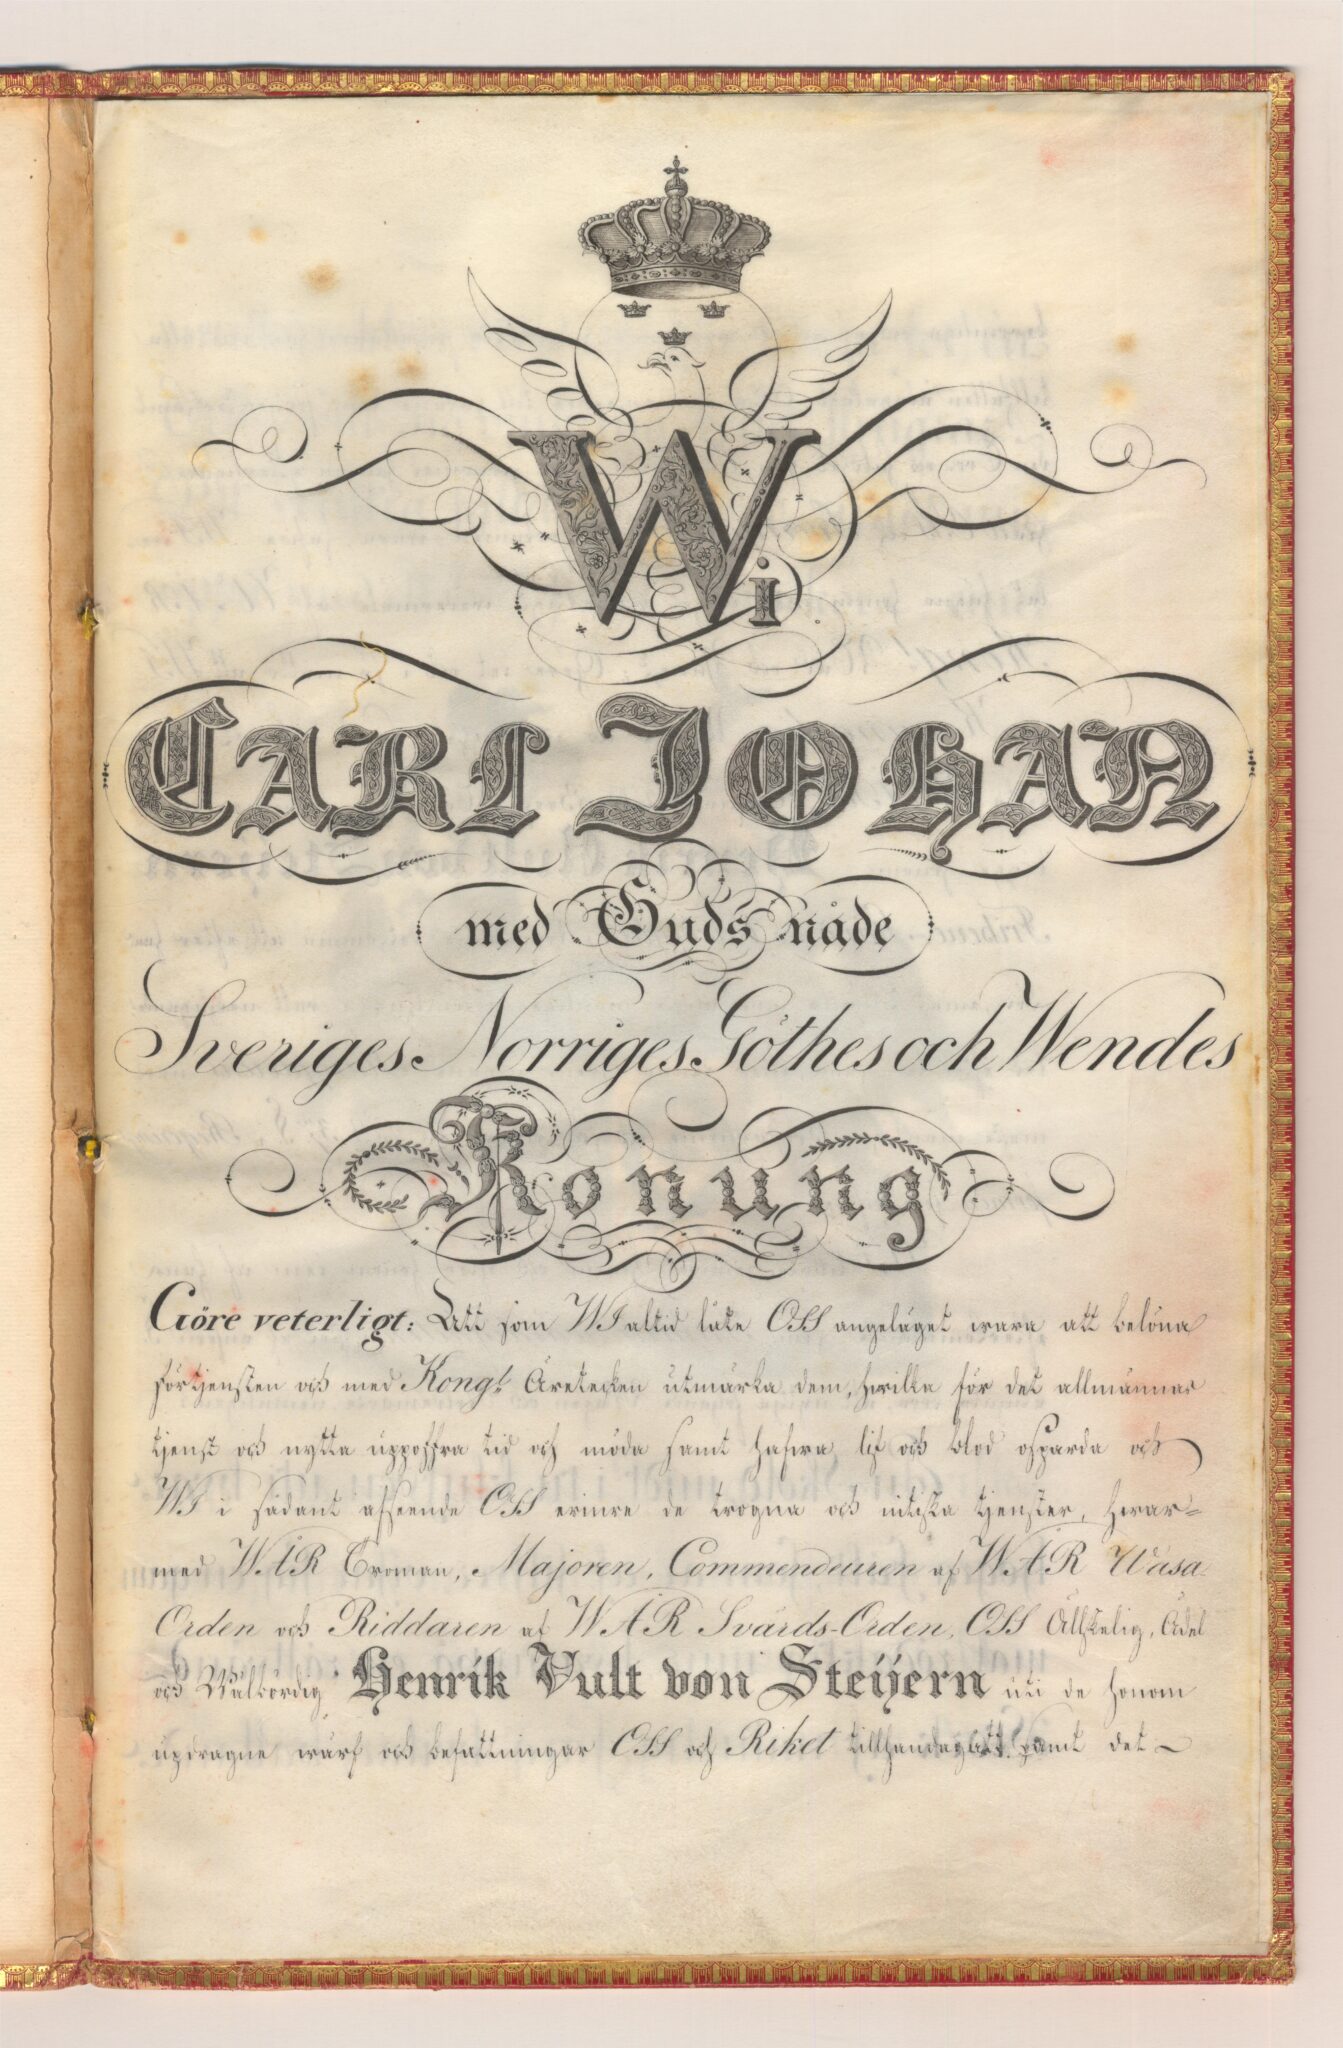 Wi
CARL JOHAN
med Guds nåde
Sveriges Norriges Göthes och Wendes
Konung
Göre veterligt: Att som WI altid låte OSS angeläget wara att belöna
förtjensten och med Kongl. Äretecken utmärka dem, hwilka för det allmännas
tjenst och nytta uppoffra tid och möda samt hafwa lif och blod osparda och
WI i sådant afseende OSS erinre de trogna och nitiska tjenster, hwar=
med WÅR Troman, Majoren, Commendeuren af WÅR Wasa-
Orden och Riddaren af WÅR Svärds-Orden, OSS Älskelig, Ädel
och Wälbördig Henrik Vult von Steijern uti de honom
updragne wärf och befattningar OSS och Riket tillhandagått, samt det